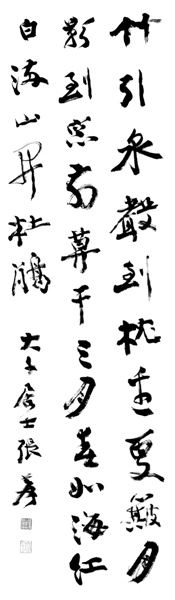 竹引泉聲到枕邊更簸月
影到窗前莫干三月春如海紅
白滿山開杜鵑 大千居士張爰